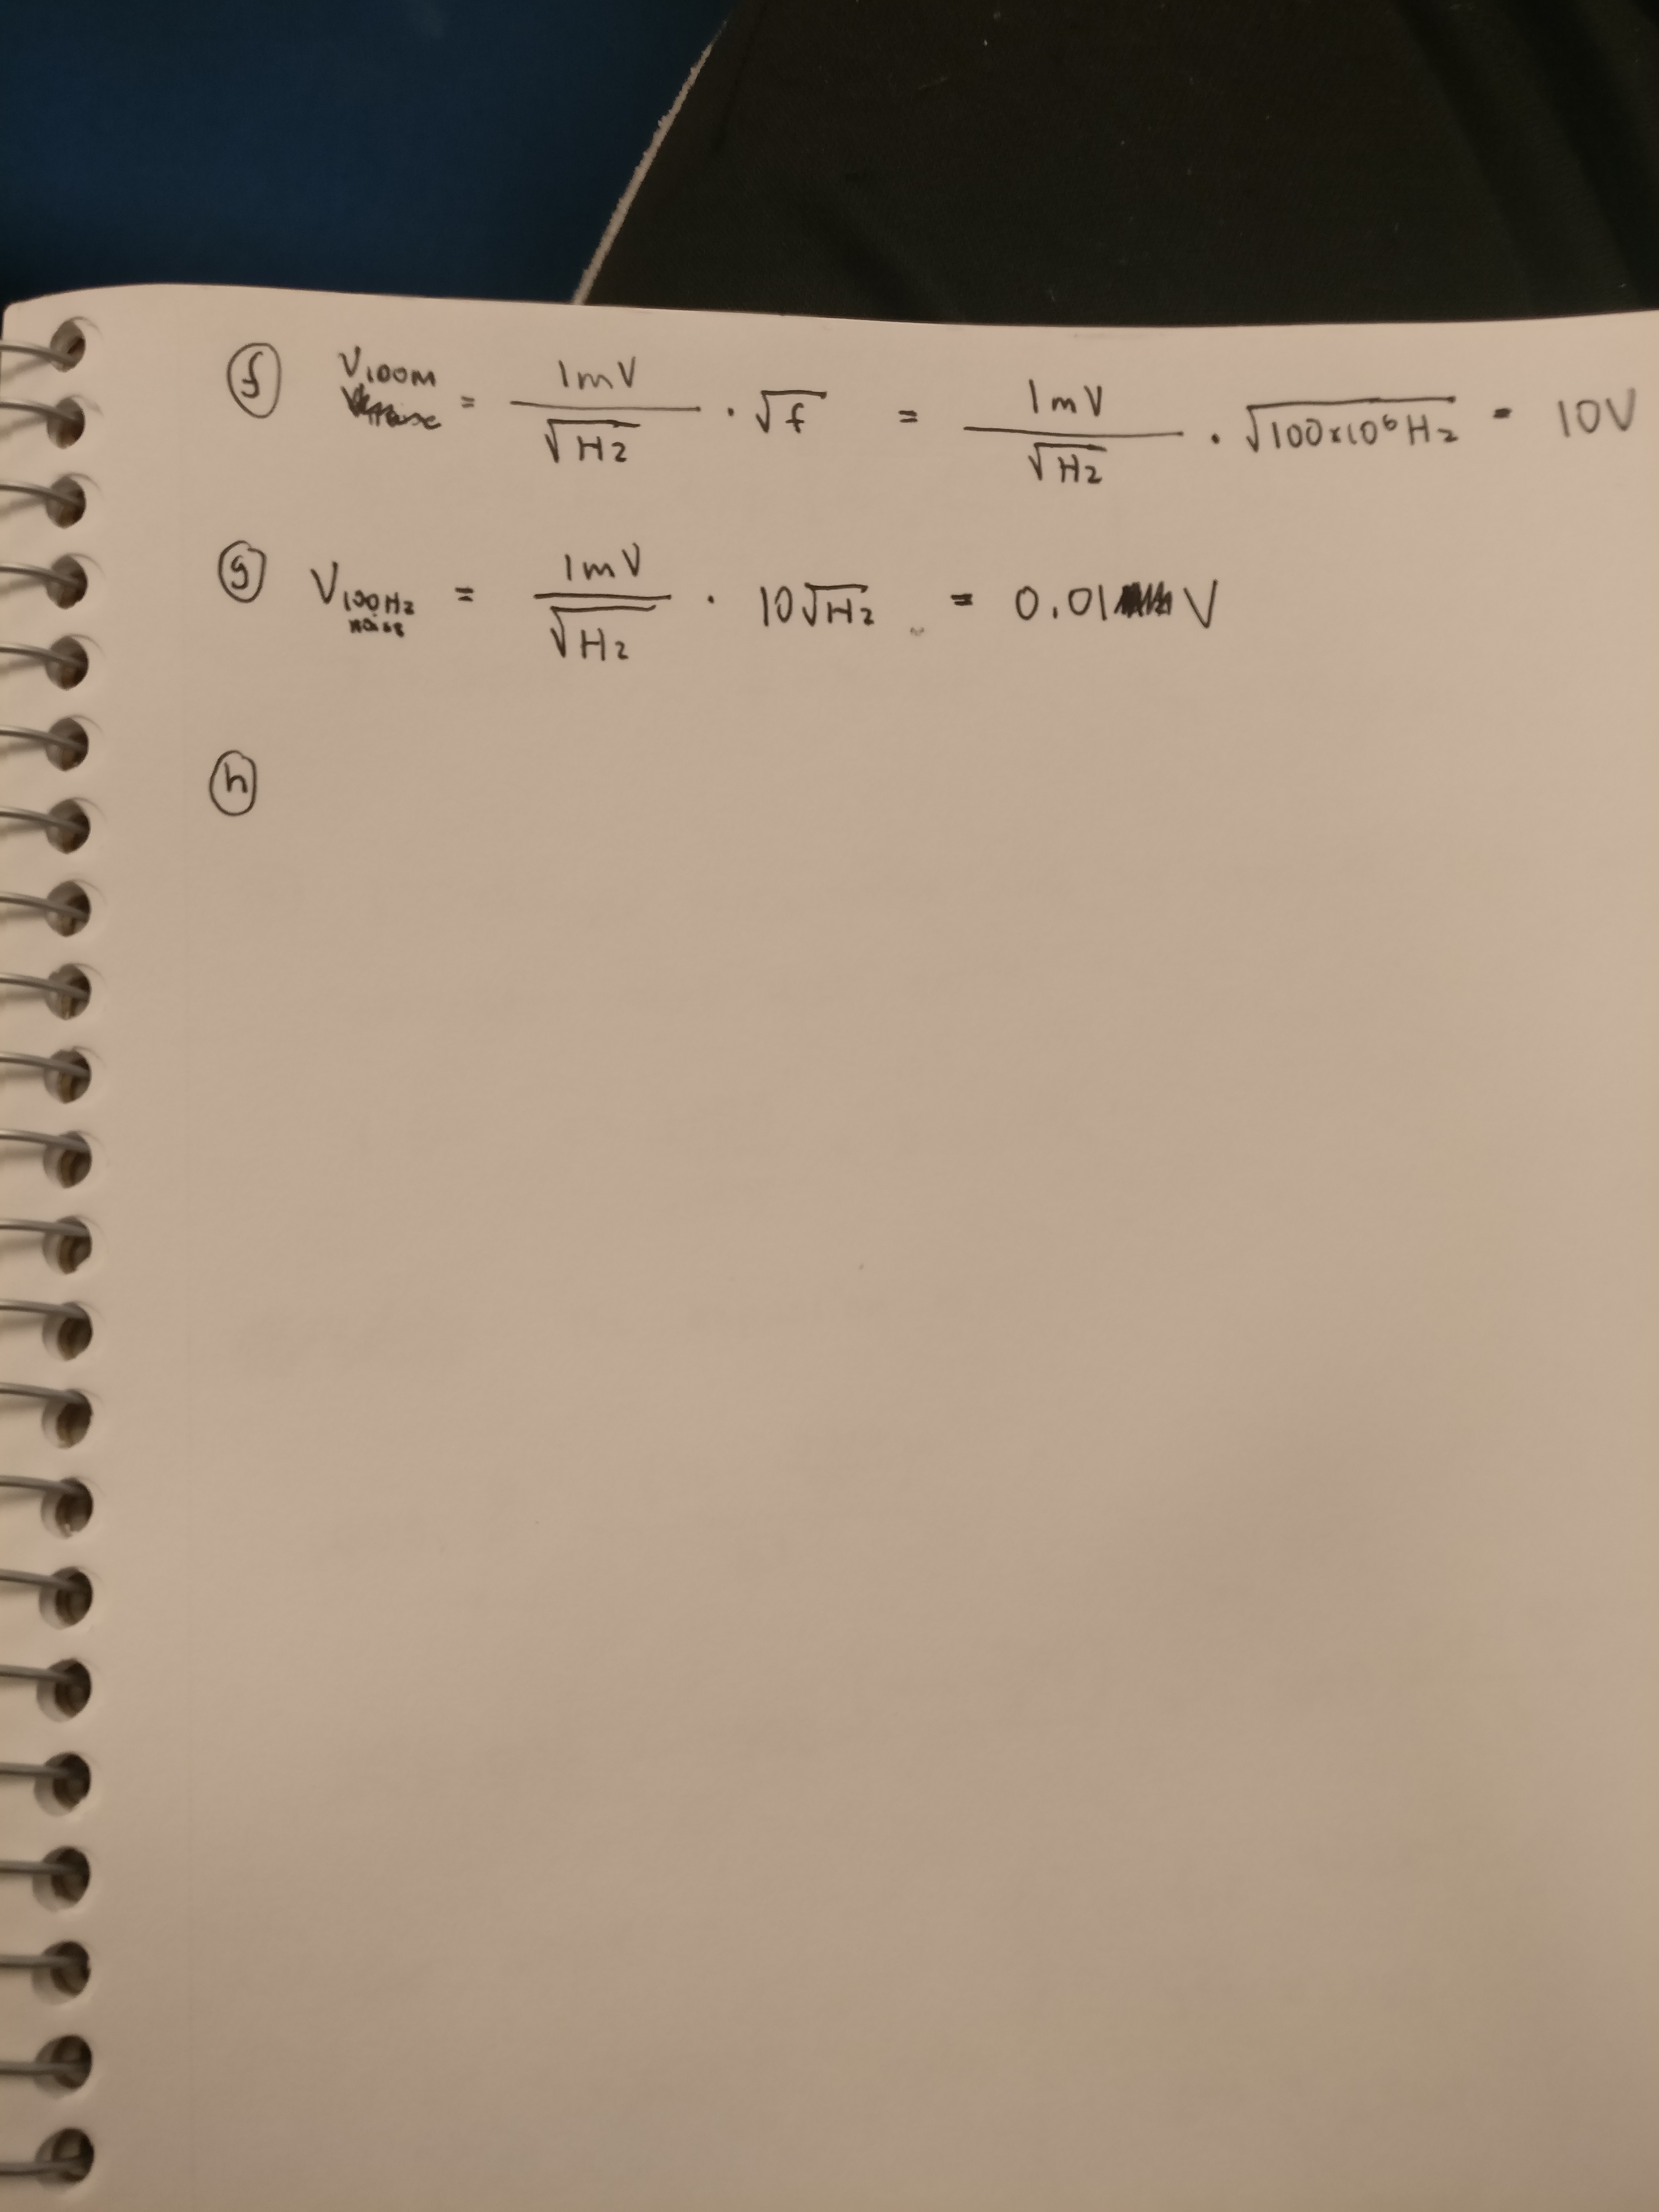 (f) V100M = 1mV/√Hz · √f = 1mV/√Hz · √100x10⁶Hz = 10V
(g) V100Hz noise = 1mV/√Hz · 10√Hz = 0.01 V
(h)